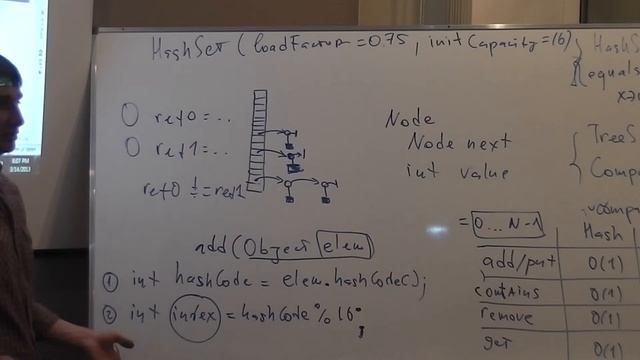 HashSet (loadFactor = 0.75, initCapacity = 16)
HashS
equals
ref0 = ..
ref1 = ..
ref0 != ref1
Node
Node next
int value
TreeS
Compa
= 0...N-1
add(Object elem)
① int hashCode = elem.hashCode();
② int index = hashCode % 16;
Hash
add/put O(1)
contains O(1)
remove O(1)
get O(1)
8:07 PM